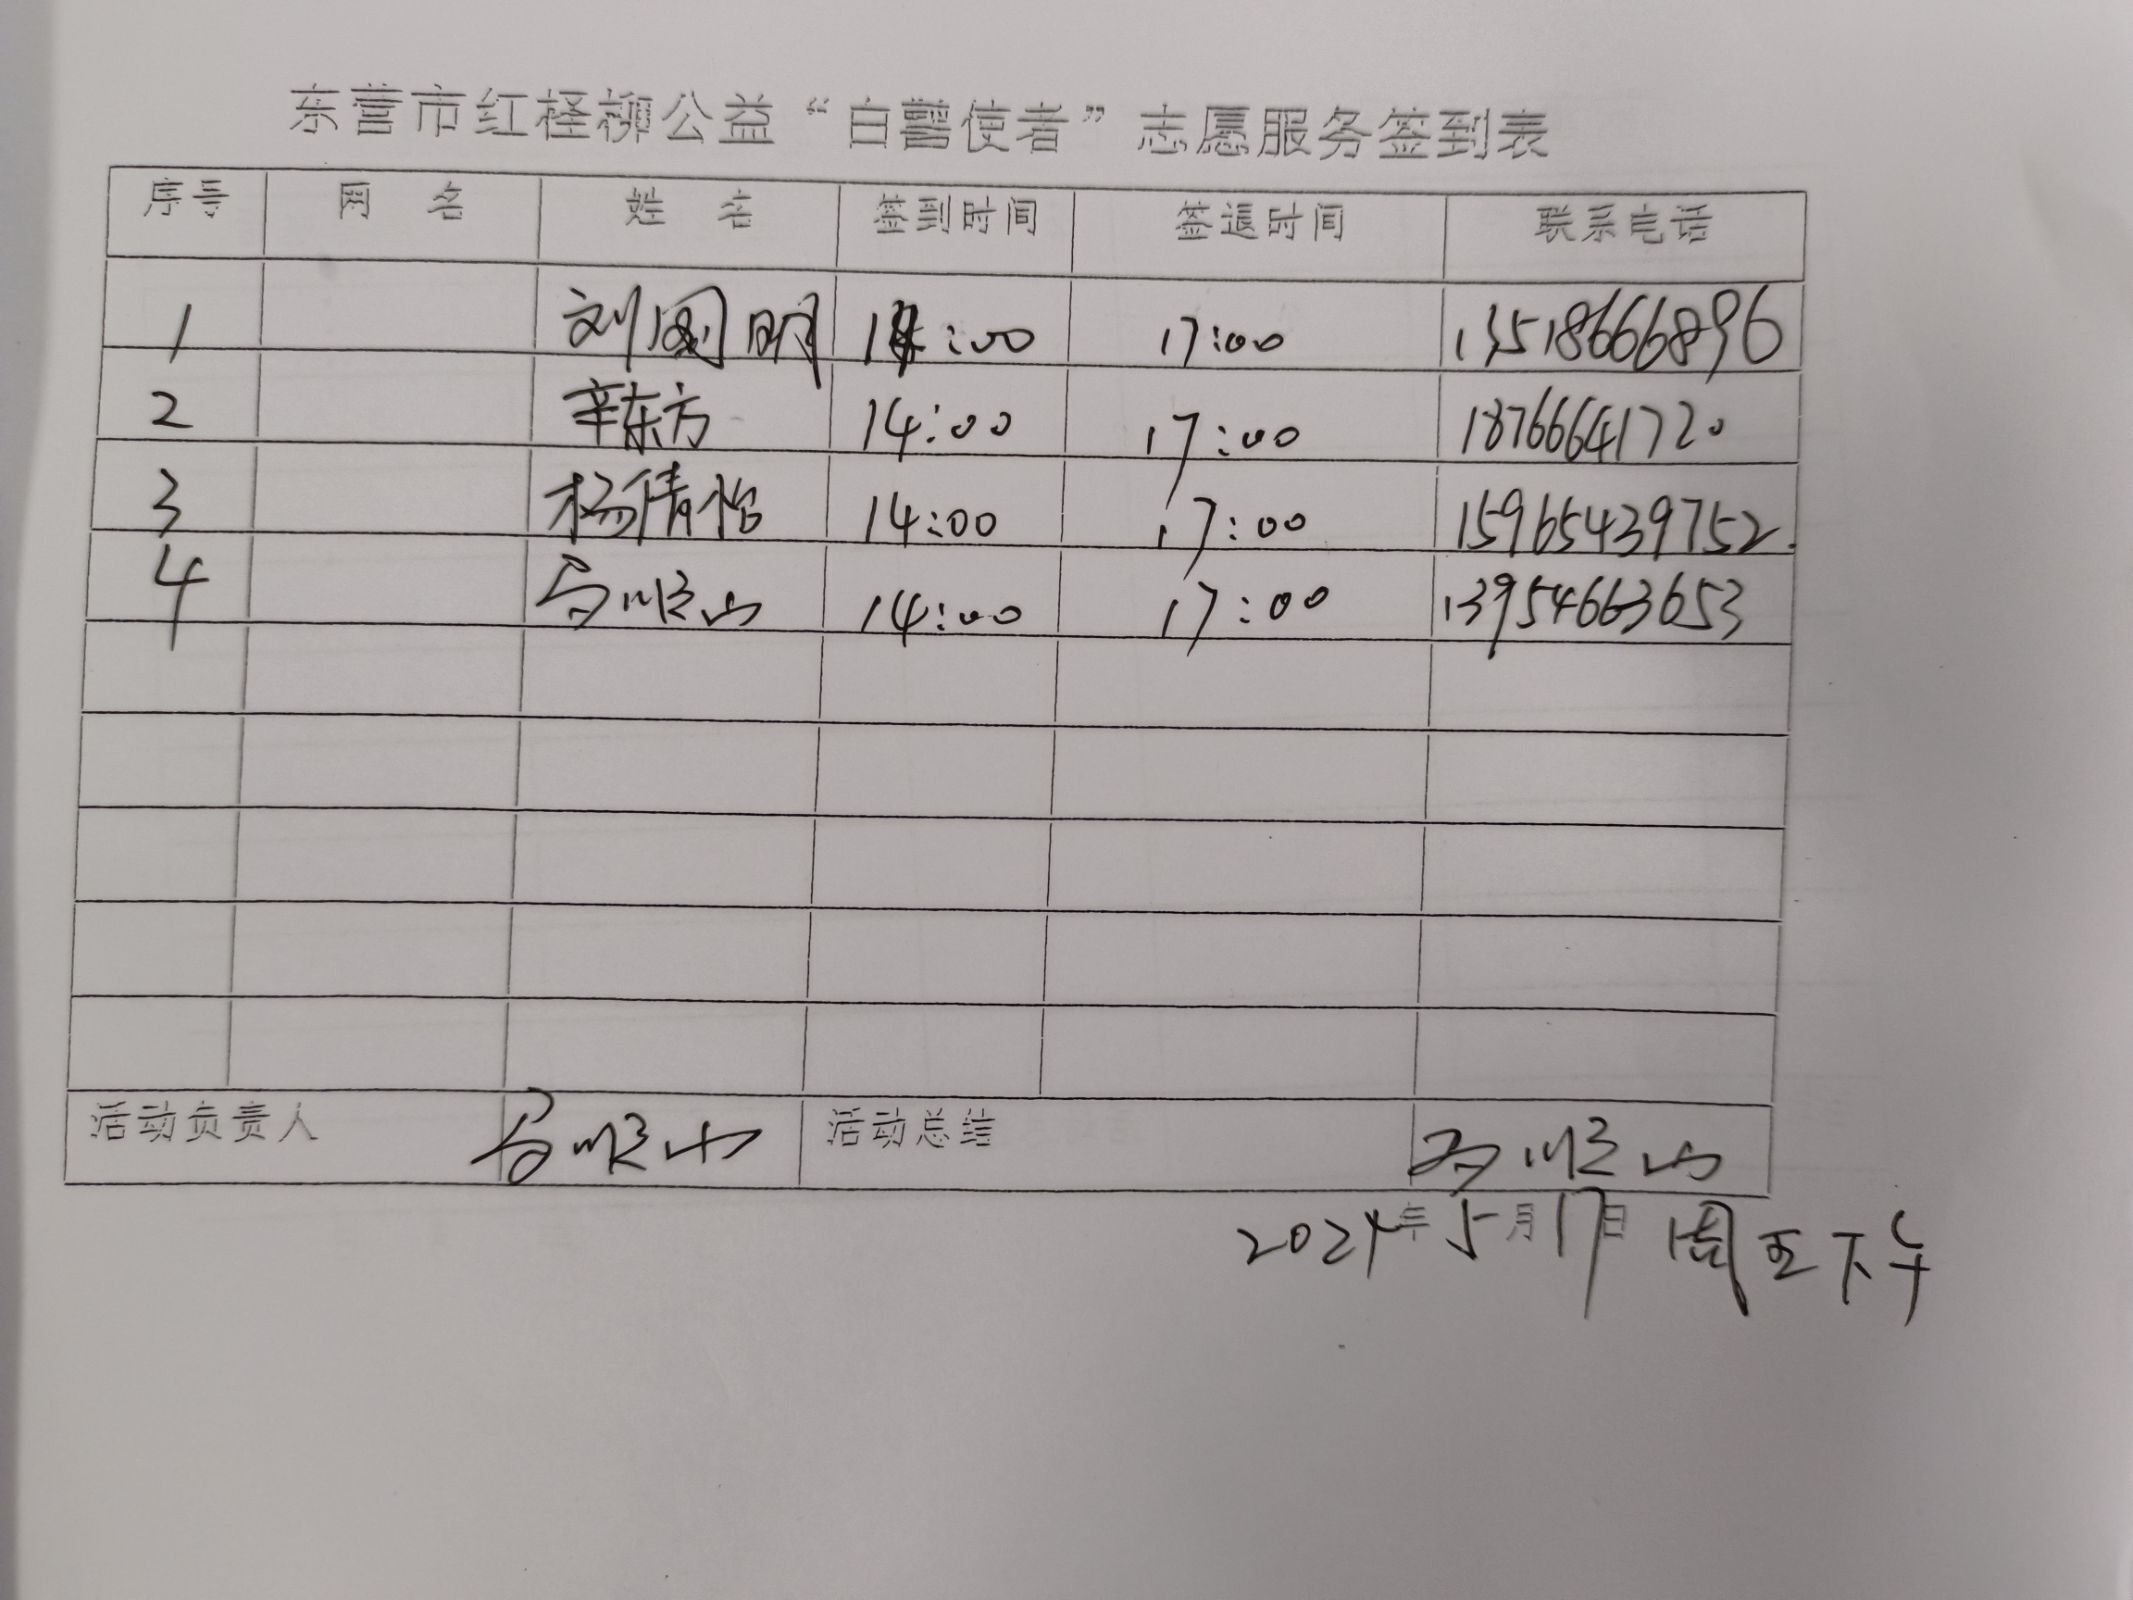 东营市红柽柳公益“白鹭使者”志愿服务签到表
序号 网 名 姓 名 签到时间 签退时间 联系电话
1 刘国明 14:00 17:00 13518666896
2 辛东方 14:00 17:00 18766641720
3 杨倩怡 14:00 17:00 15965439752.
4 马顺山 14:00 17:00 13954663653
活动负责人 马顺山 活动总结 马顺山
2024年5月17日 周五下午